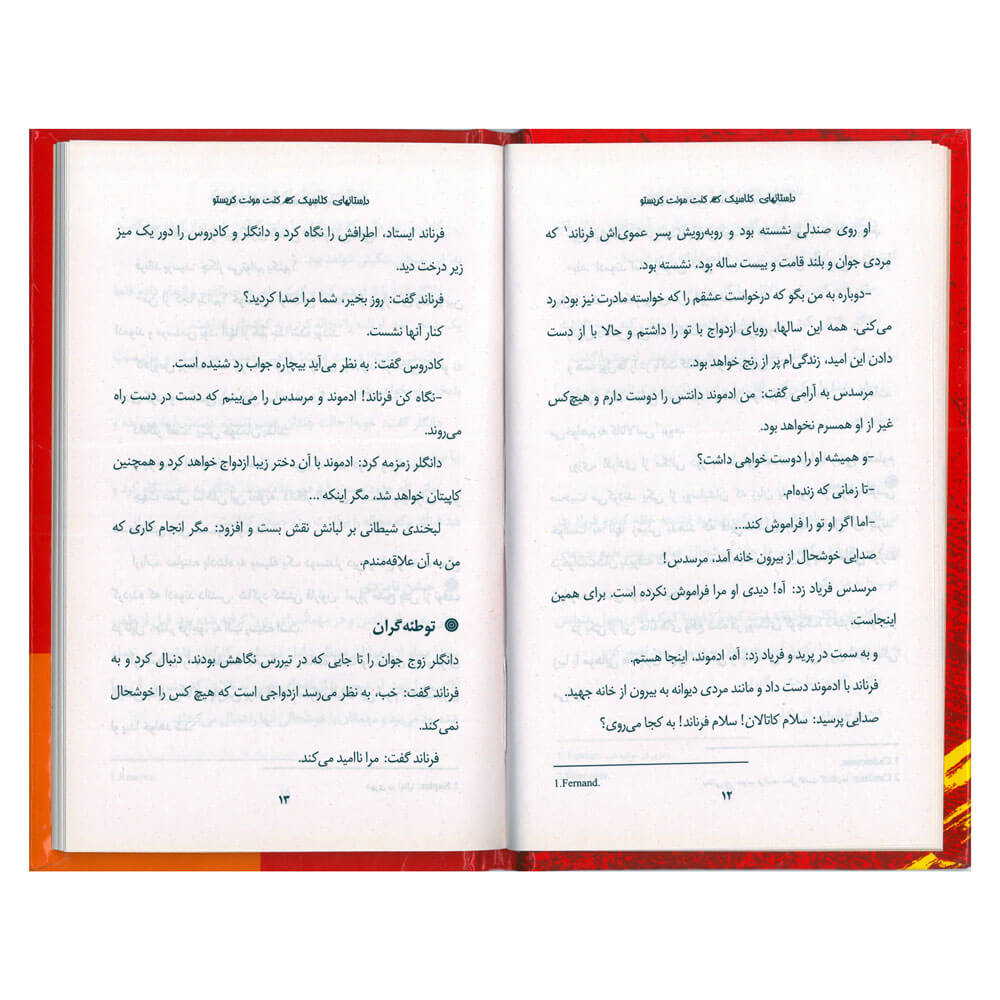 داستانهای کلاسیک کنت مونت کریستو
او روی صندلی نشسته بود و روبه‌رویش پسر عموی‌اش فرناند۱ که
مردی جوان و بلند قامت و بیست ساله بود، نشسته بود.
-دوباره به من بگو که درخواست عشقم را که خواسته مادرت نیز بود، رد
می‌کنی. همه این سالها، رویای ازدواج با تو را داشتم و حالا با از دست
دادن این امید، زندگی‌ام پر از رنج خواهد بود.
مرسدس به آرامی گفت: من ادموند دانتس را دوست دارم و هیچ‌کس
غیر از او همسرم نخواهد بود.
-و همیشه او را دوست خواهی داشت؟
-تا زمانی که زنده‌ام.
-اما اگر او تو را فراموش کند...
صدایی خوشحال از بیرون خانه آمد، مرسدس!
مرسدس فریاد زد: آه! دیدی او مرا فراموش نکرده است. برای همین
اینجاست.
و به سمت در پرید و فریاد زد: آه، ادموند، اینجا هستم.
فرناند با ادموند دست داد و مانند مردی دیوانه به بیرون از خانه جهید.
صدایی پرسید: سلام کاتالان! سلام فرناند! به کجا می‌روی؟
1.Fernand.
۱۲
داستانهای کلاسیک کنت مونت کریستو
فرناند ایستاد، اطرافش را نگاه کرد و دانگلر و کادروس را دور یک میز
زیر درخت دید.
فرناند گفت: روز بخیر، شما مرا صدا کردید؟
کنار آنها نشست.
کادروس گفت: به نظر می‌آید بیچاره جواب رد شنیده است.
-نگاه کن فرناند! ادموند و مرسدس را می‌بینم که دست در دست راه
می‌روند.
دانگلر زمزمه کرد: ادموند با آن دختر زیبا ازدواج خواهد کرد و همچنین
کاپیتان خواهد شد، مگر اینکه ...
لبخندی شیطانی بر لبانش نقش بست و افزود: مگر انجام کاری که
من به آن علاقه‌مندم.
توطئه‌گران
دانگلر زوج جوان را تا جایی که در تیررس نگاهش بودند، دنبال کرد و به
فرناند گفت: خب، به نظر می‌رسد ازدواجی است که هیچ کس را خوشحال
نمی‌کند.
فرناند گفت: مرا ناامید می‌کند.
۱۳